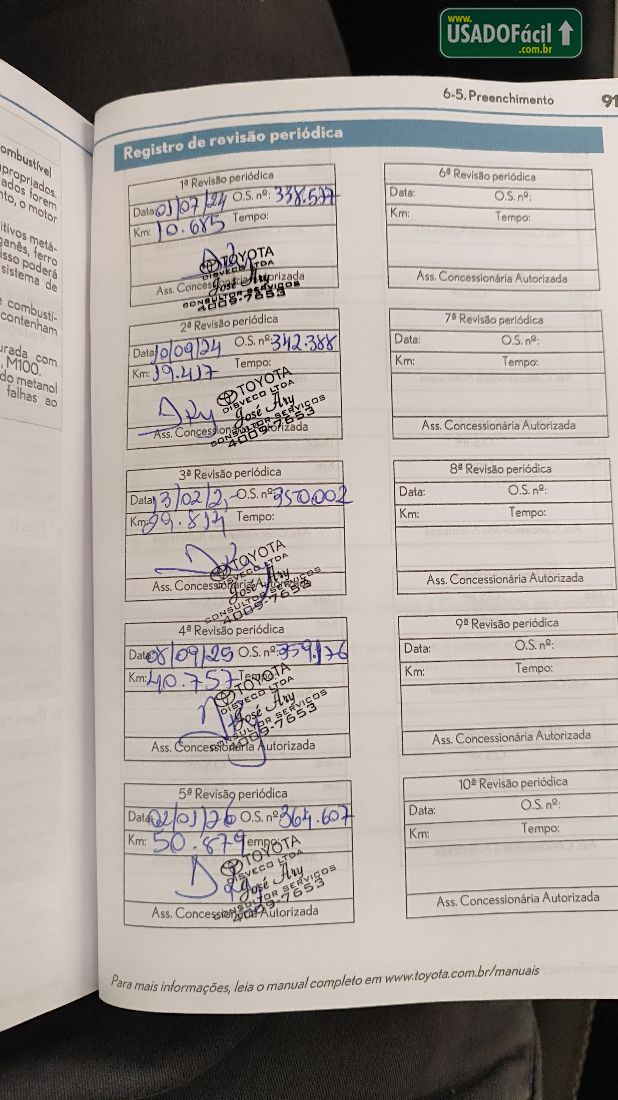 www.
USADOFácil
.com.br
6-5. Preenchimento
91
ombustível
apropriados.
ados forem
nto, o motor
itivos metá-
ganês, ferro
isso poderá
sistema de
combustí-
contenham
urada com
, M100.
do metanol
falhas ao
Registro de revisão periódica
1ª Revisão periódica
Data: 01/07/24 O.S. nº: 338.537
Km: 10.685 Tempo:
TOYOTA
DISVECO LTDA
José Ary
CONSULTOR SERVICOS
4009-7653
Ass. Concessionária Autorizada
2ª Revisão periódica
Data: 10/09/24 O.S. nº: 342.388
Km: 19.417 Tempo:
TOYOTA
DISVECO LTDA
José Ary
CONSULTOR SERVICOS
4009-7653
Ass. Concessionária Autorizada
3ª Revisão periódica
Data: 13/02/2 O.S. nº: 350.002
Km: 29.814 Tempo:
TOYOTA
DISVECO LTDA
José Ary
CONSULTOR SERVICOS
4009-7653
Ass. Concessionária Autorizada
4ª Revisão periódica
Data: 08/09/25 O.S. nº: 359.176
Km: 40.757 Tempo:
TOYOTA
DISVECO LTDA
José Ary
CONSULTOR SERVICOS
4009-7653
Ass. Concessionária Autorizada
5ª Revisão periódica
Data: 02/01/26 O.S. nº: 364.607
Km: 50.879 Tempo:
TOYOTA
DISVECO LTDA
José Ary
CONSULTOR SERVICOS
4009-7653
Ass. Concessionária Autorizada
6ª Revisão periódica
Data: O.S. nº:
Km: Tempo:
Ass. Concessionária Autorizada
7ª Revisão periódica
Data: O.S. nº:
Km: Tempo:
Ass. Concessionária Autorizada
8ª Revisão periódica
Data: O.S. nº:
Km: Tempo:
Ass. Concessionária Autorizada
9ª Revisão periódica
Data: O.S. nº:
Km: Tempo:
Ass. Concessionária Autorizada
10ª Revisão periódica
Data: O.S. nº:
Km: Tempo:
Ass. Concessionária Autorizada
Para mais informações, leia o manual completo em www.toyota.com.br/manuais